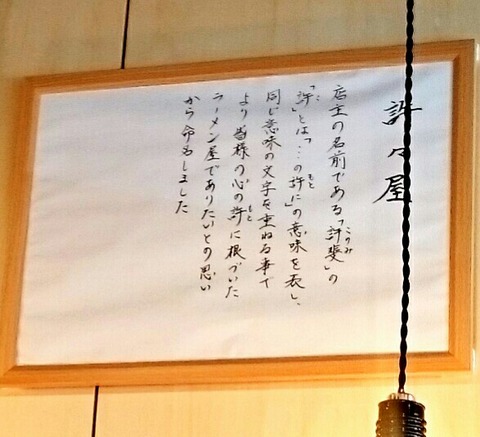 許々屋
店主の名前である「許斐」の
このみ
「許」とは「…の許に」の意味を表し、
こ
もと
同じ意味の文字を重ねる事で
より皆様の心の許に根づいた
もと
ラーメン屋でありたいとの思い
から命名しました